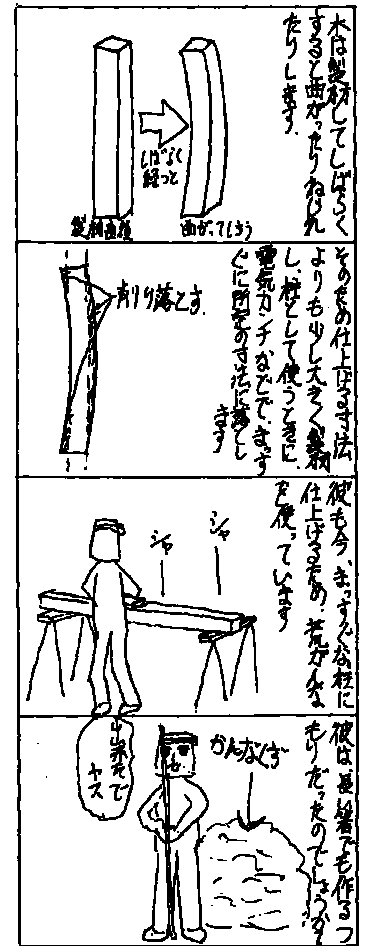 木は製材してしばらく
すると曲がったりねじれ
たりします。
しばらく
経つと
製材直後
曲がってしまう
そのため仕上げる寸法
よりも少し大きく製材
し、柱として使うときに、
電気カンナなどで、まっす
ぐに所定の寸法に落とし
ます
削り落とす。
彼も今、まっすぐな柱に
仕上げるため、荒がんな
を使っています
シャ
シャ
彼は長箸でも作るつ
もりだったのでしょうか?
かんなくず
出来た